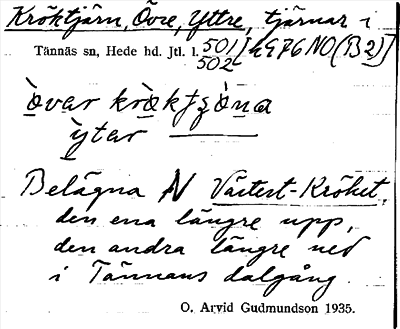 Kröktjärn, Övre, Yttre, tjärnar i
Tännäs sn, Hede hd. Jtl. l. 501 [49F6 NO (B2)]
502
òvar krò̱kʃzò̱na
ỳtar
Belägna N Västert-Kröket,
den ena längre upp,
den andra längre ned
i Tännans dalgång.
O. Arvid Gudmundson 1935.